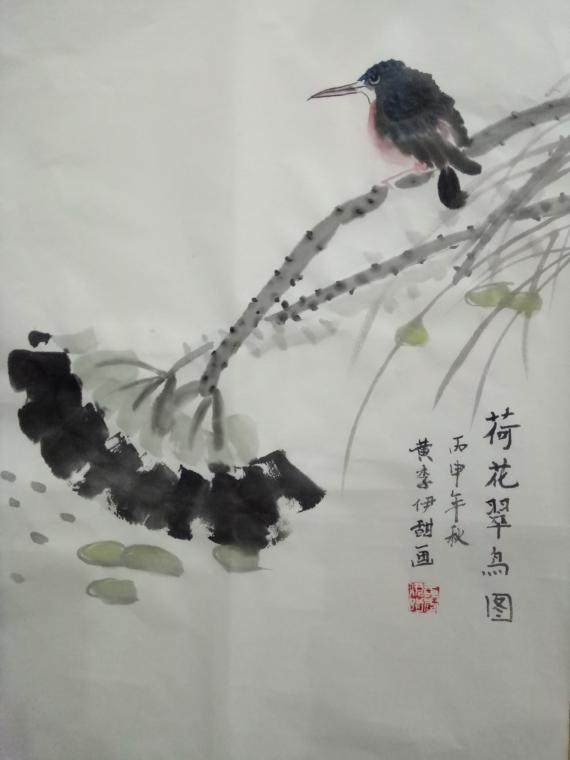 荷花翠鸟图
丙申年秋
黄李伊甜画